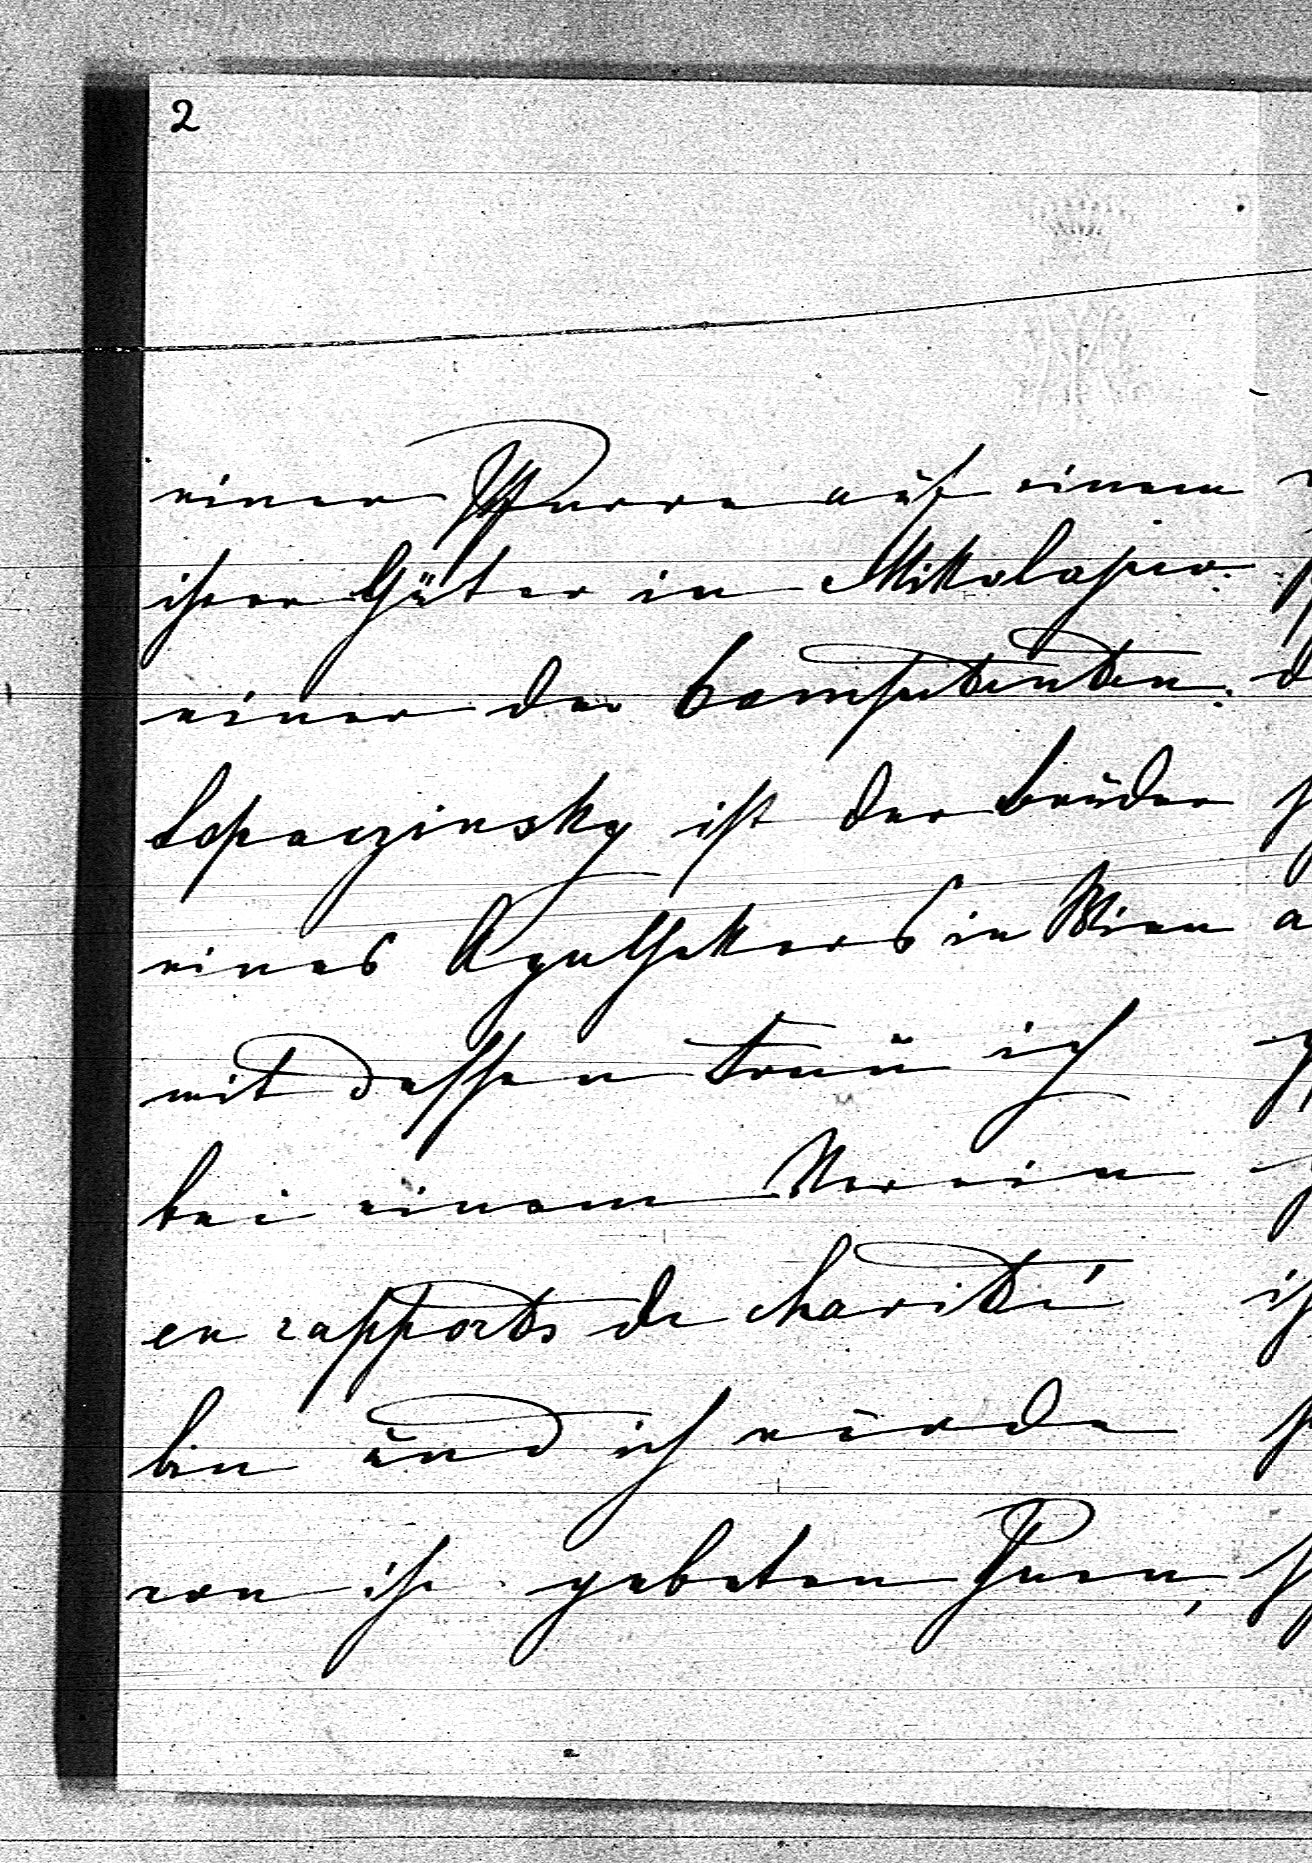 2
einer Pfarre auf einem
ihrer Güter in Mikolapiw.
einer der Competenten.
Lopaczinsky ist der Bruder
eines Apothekers in Wien
mit dessen Frau ich
bei einem Verein
en rapports de charité
bin und ich würde
von ihr gebeten Ihnen,